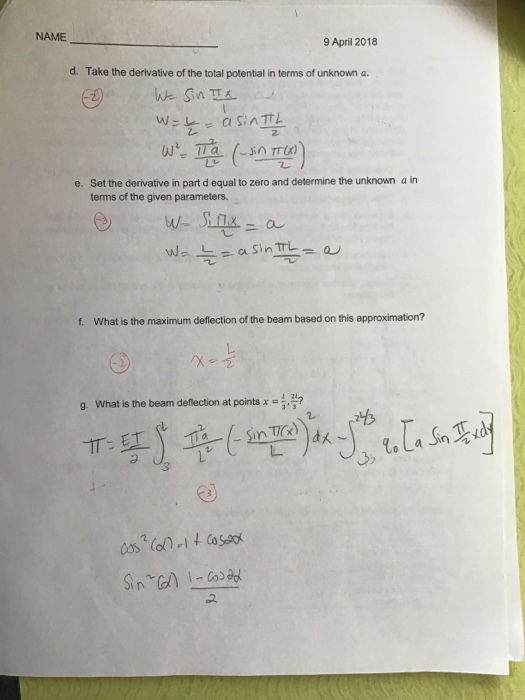 NAME
9 April 2018
d. Take the derivative of the total potential in terms of unknown a.
(-2)
W= Sin πx
W = L/2 = a sin πL/2
W² = π²a/L² (-sin π(x)/2)
e. Set the derivative in part d equal to zero and determine the unknown a in
terms of the given parameters.
W= Sin πx/2 = a
W= L/2 = a sin πL/2 = a
f. What is the maximum deflection of the beam based on this approximation?
(-2)
x = L/2
g. What is the beam deflection at points x = l/3, 2l/3?
π = EI/2 ∫ π²a/L² (-sin π(x)/L)² dx - ∫ q₀ [a sin π/2 xdx]
(-3)
cos²(α) = 1 + cos2α
Sin²(α) 1 - cos2α/2